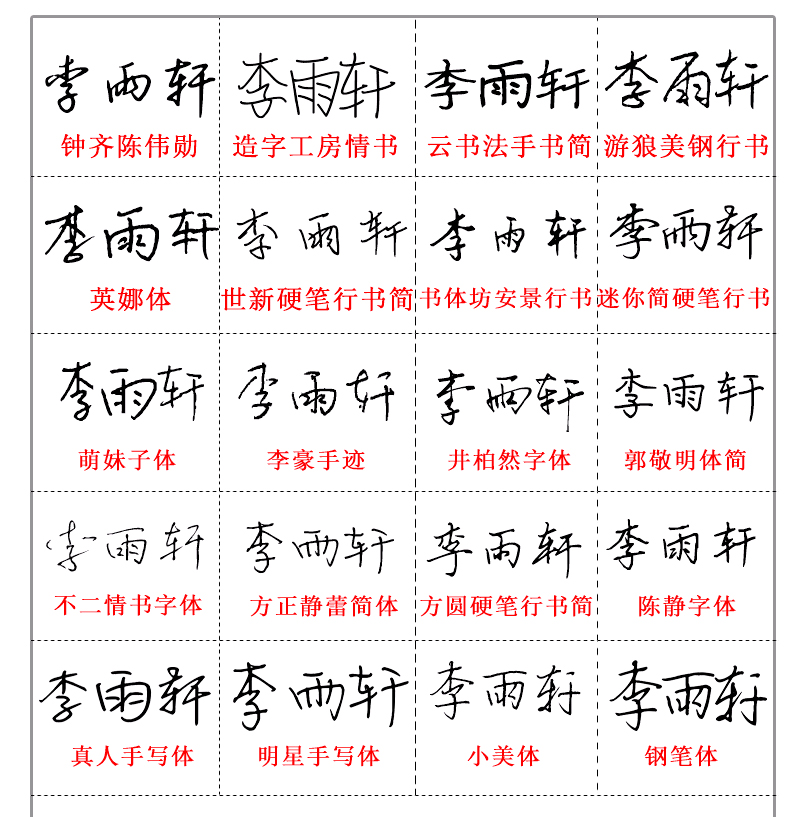 李雨轩 李雨轩 李雨轩 李雨轩
钟齐陈伟勋 造字工房情书 云书法手书简 游狼美钢行书
李雨轩 李雨轩 李雨轩 李雨轩
英娜体 世新硬笔行书简 书体坊安景行书 迷你简硬笔行书
李雨轩 李雨轩 李雨轩 李雨轩
萌妹子体 李豪手迹 井柏然字体 郭敬明体简
李雨轩 李雨轩 李雨轩 李雨轩
不二情书字体 方正静蕾简体 方圆硬笔行书简 陈静字体
李雨轩 李雨轩 李雨轩 李雨轩
真人手写体 明星手写体 小美体 钢笔体